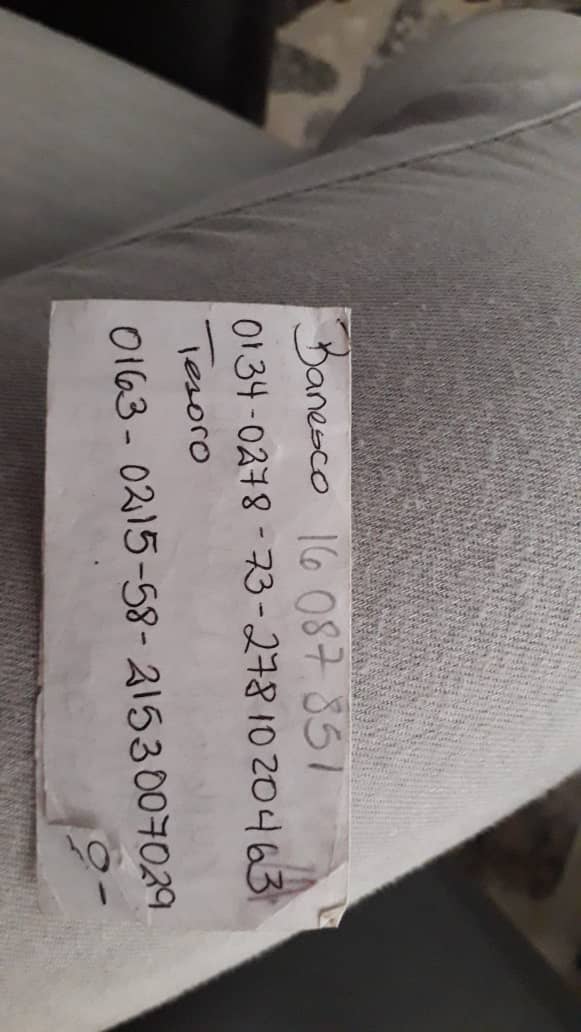 Banesco 16 087 851
0134-0278-73-2781020463
Tesoro
0163-0215-58-2153007029
0-